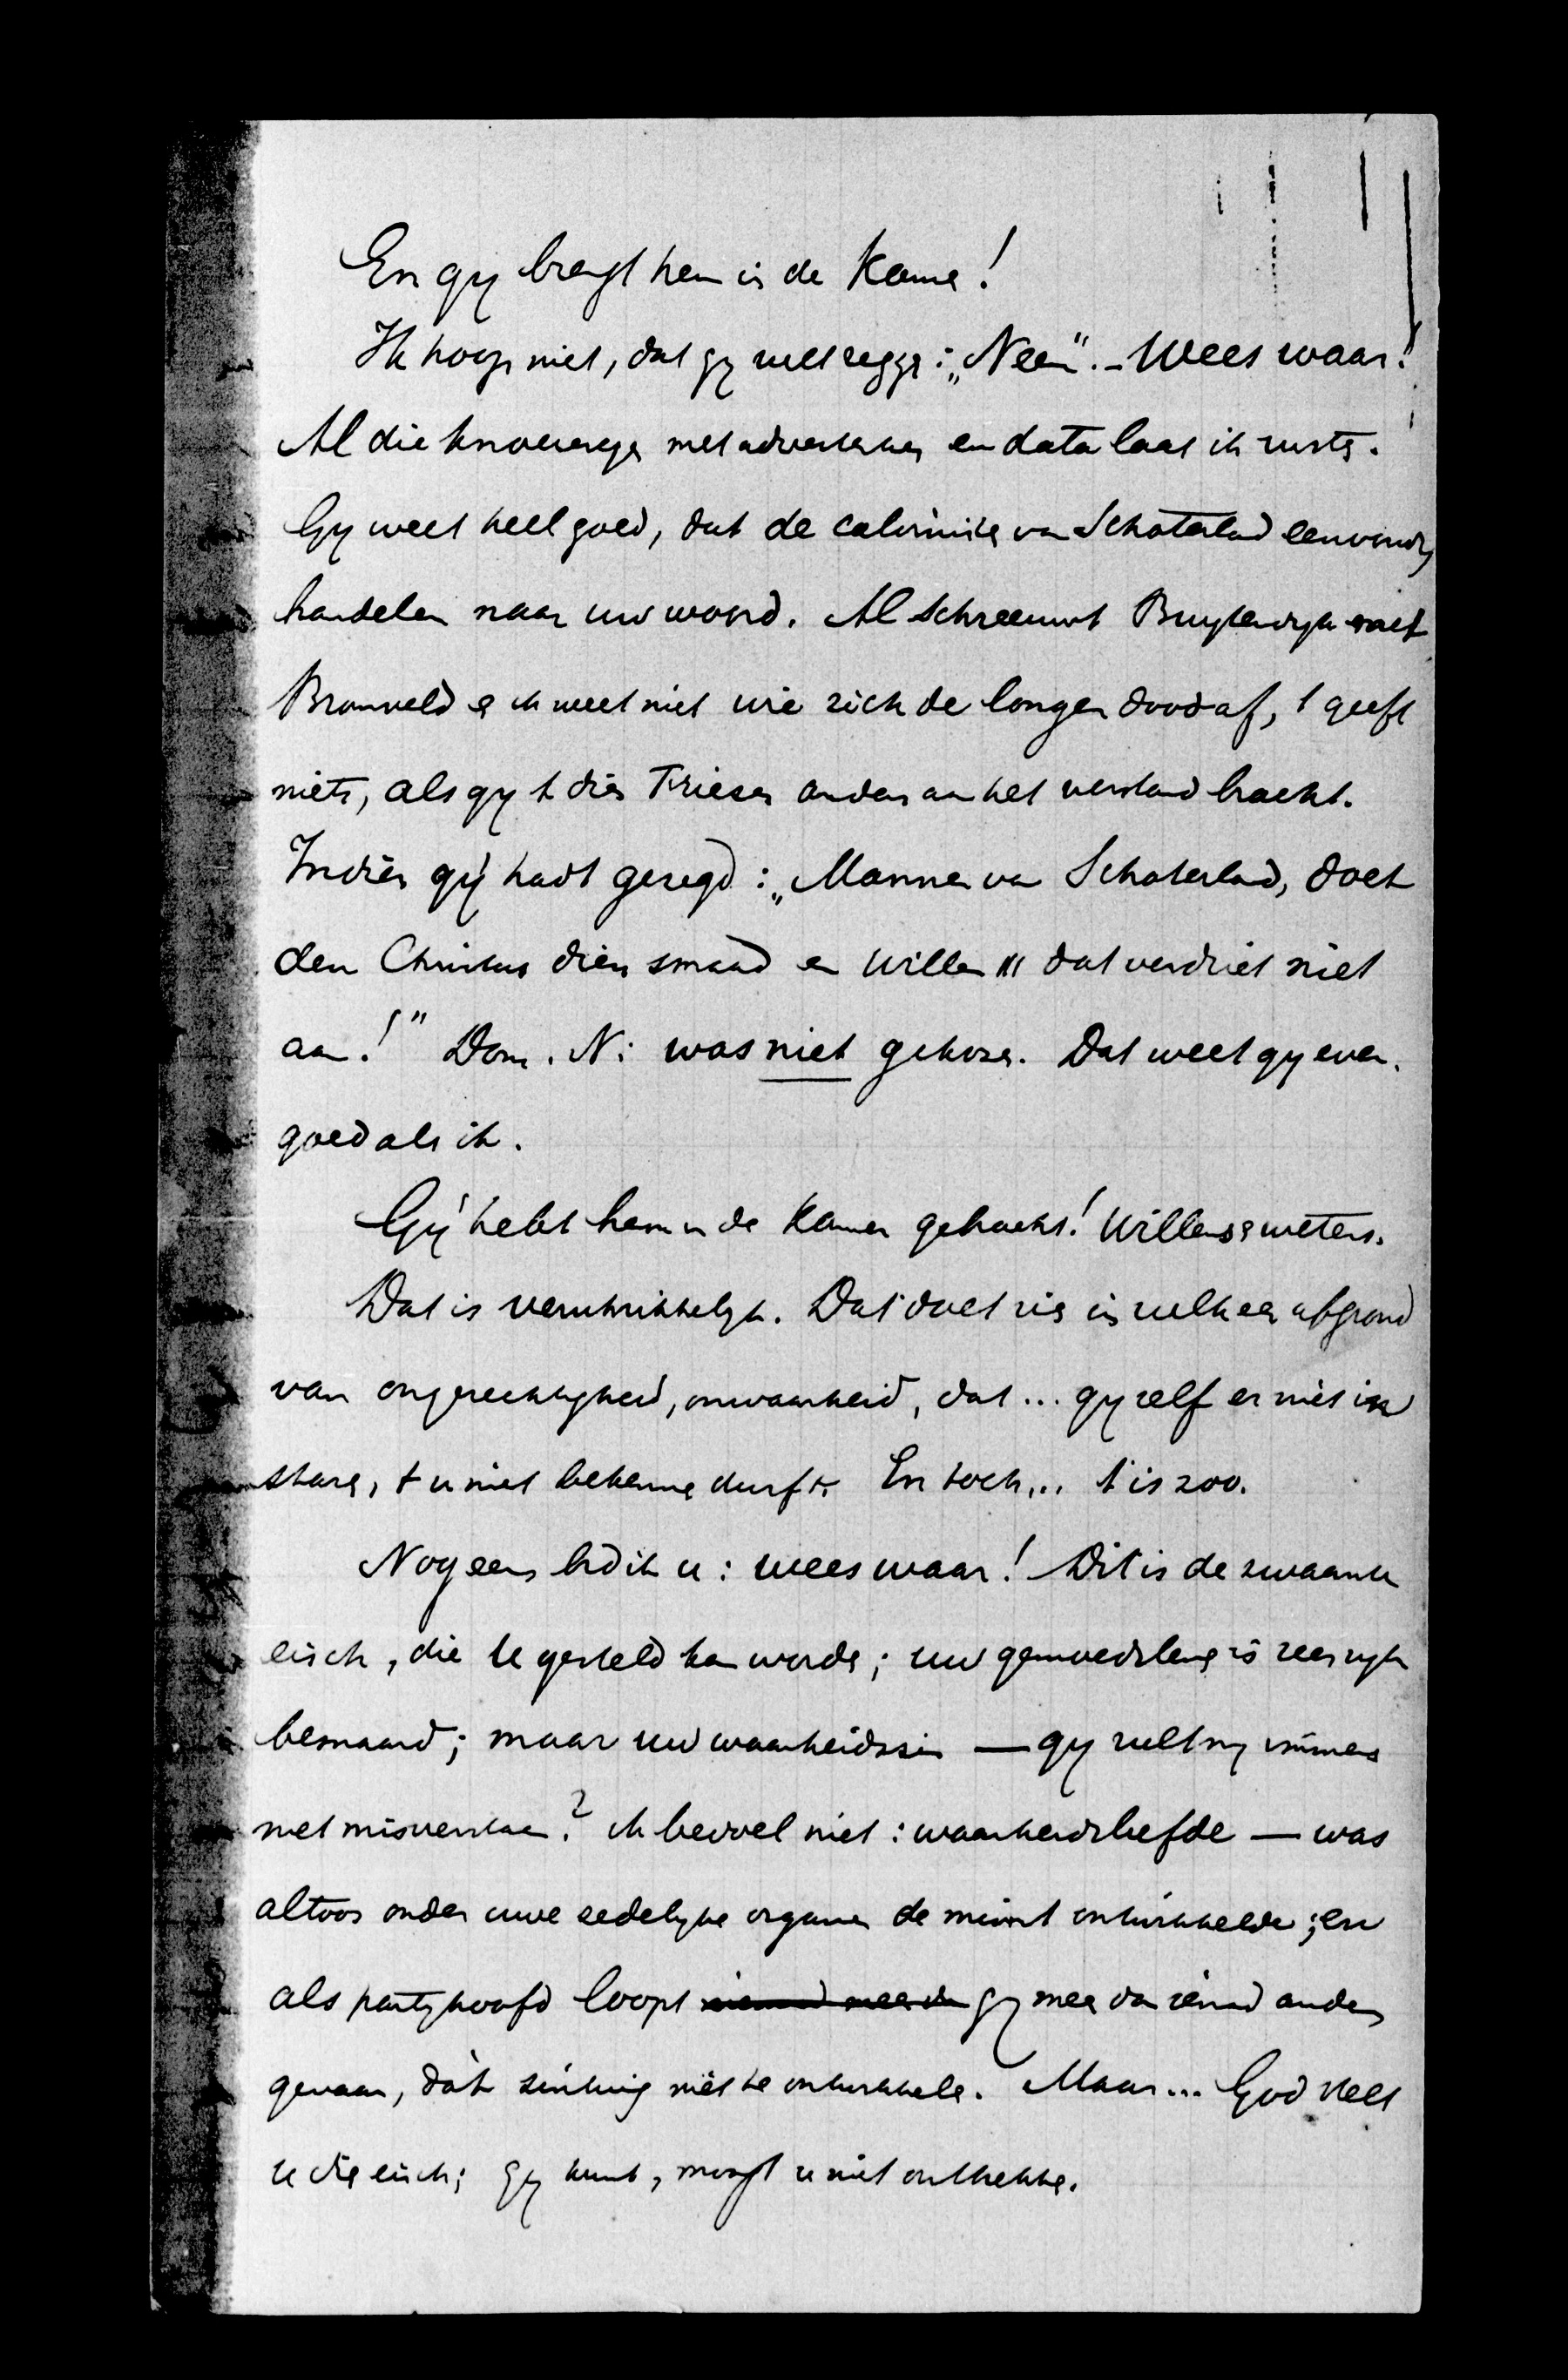 En gy bragt hem in de Kamer!
Ik hoop niet, dat gy zult zeggen: „Neen”. – Wees waar!
Al die knoeierijen met advertenties en data laat ik rusten.
Gy weet heel goed, dat de calvinisten van Schoterland eenvoudig
handelen naar uw woord. Al schreeuwt Buytendyk met
Bronsveld en ik weet niet wie zich de longen dood af, 't geeft
niets, als gy 't dien Friesen anders aan het verstand bracht.
Indien gy hadt gezegd: „Mannen van Schoterland, doet
den Christus dien smaad en Willem III dat verdriet niet
aan!” Dom. N: was niet gekozen. Dat weet gy even-
goed als ik.
Gy hebt hem in de Kamer gebracht! Willens & wetens.
Dat is verschrikkelyk. Dat doet zien in zulk een afgrond
van ongerechtigheid, onwaarheid, dat... gy zelf er niet in
staren, 't u niet bekennen durft. En toch... 't is zoo.
Nog eens bid ik u: wees waar! Dit is de zwaarste
eisch, die U gesteld kan worden; uw gemoedsleven is zeer ryk
besnaard; maar uw waarheidszin — gy zult my immers
niet misverstaan? ik bedoel niet: waarheidsliefde — was
altoos onder uwe zedelyke organen de minst ontwikkelde; en
als partyhoofd loopt niemand meer dan gy meer dan iemand anders
gevaar, dat zintuig niet te ontwikkelen. Maar... God stelt
U die eisch; gy kunt, moogt u niet onttrekken.